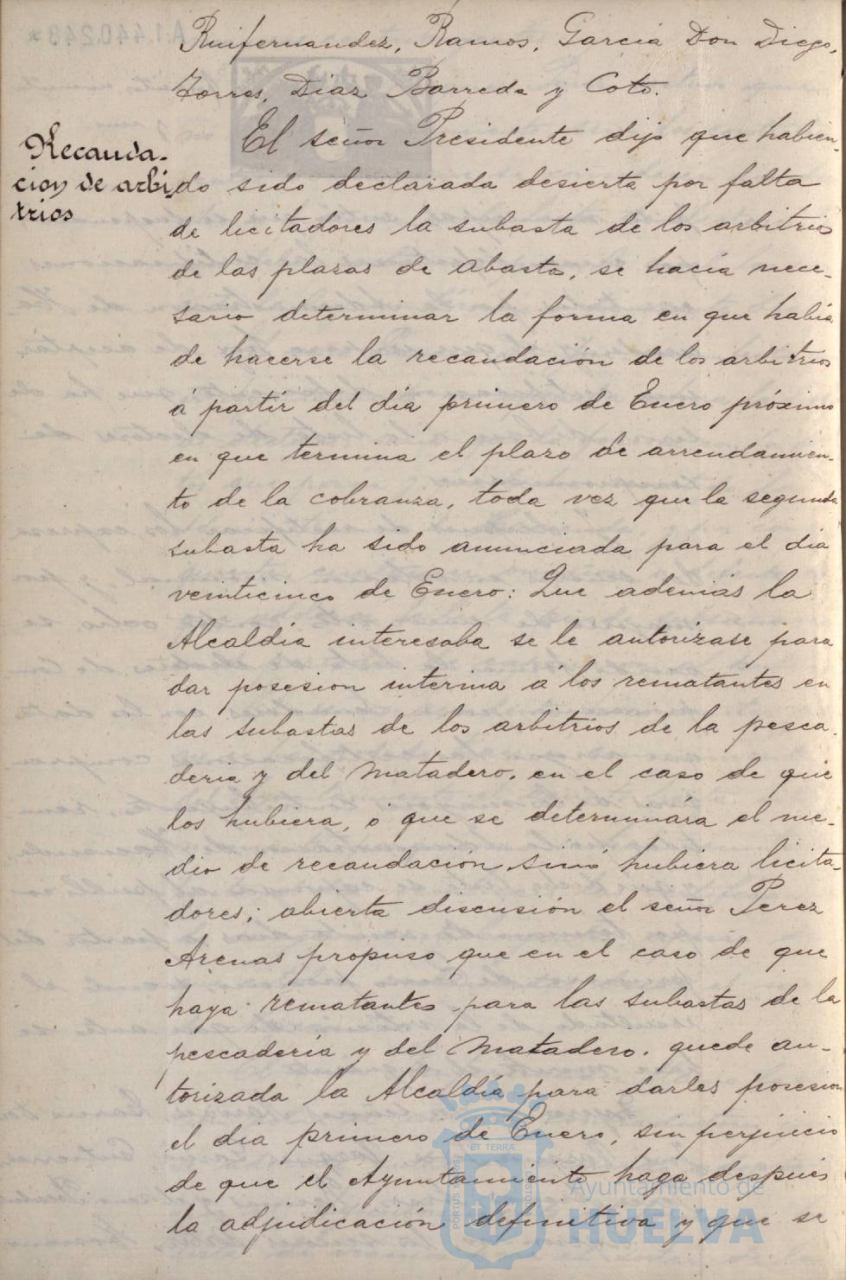 Ruifernandez, Ramos, García Don Diego,
Torres, Diaz Barreda y Coto.
Recauda-
cion de arbi-
trios
El señor Presidente dijo que habien-
do sido declarada desierta por falta
de licitadores la subasta de los arbitrios
de las plazas de abasto, se hacía nece-
sario determinar la forma en que había
de hacerse la recaudación de los arbitrios
á partir del día primero de Enero próximo
en que termina el plazo de arrendamien-
to de la cobranza, toda vez que la segunda
subasta ha sido anunciada para el dia
veinticinco de Enero: Que además la
Alcaldía interesaba se le autorizase para
dar posesion interina á los rematantes en
las subastas de los arbitrios de la pesca-
deria y del Matadero, en el caso de que
los hubiera, ó que se determinára el me-
dio de recaudación sinó hubiera licita-
dores; abierta discusión el señor Perez
Arenas propuso que en el caso de que
haya rematantes para las subastas de la
pescadería y del Matadero, quede au-
torizada la Alcaldía para darles posesion
el dia primero de Enero, sin perjuicio
de que el Ayuntamiento haga después
la adjudicación definitiva y que se
Ayuntamiento de
HUELVA